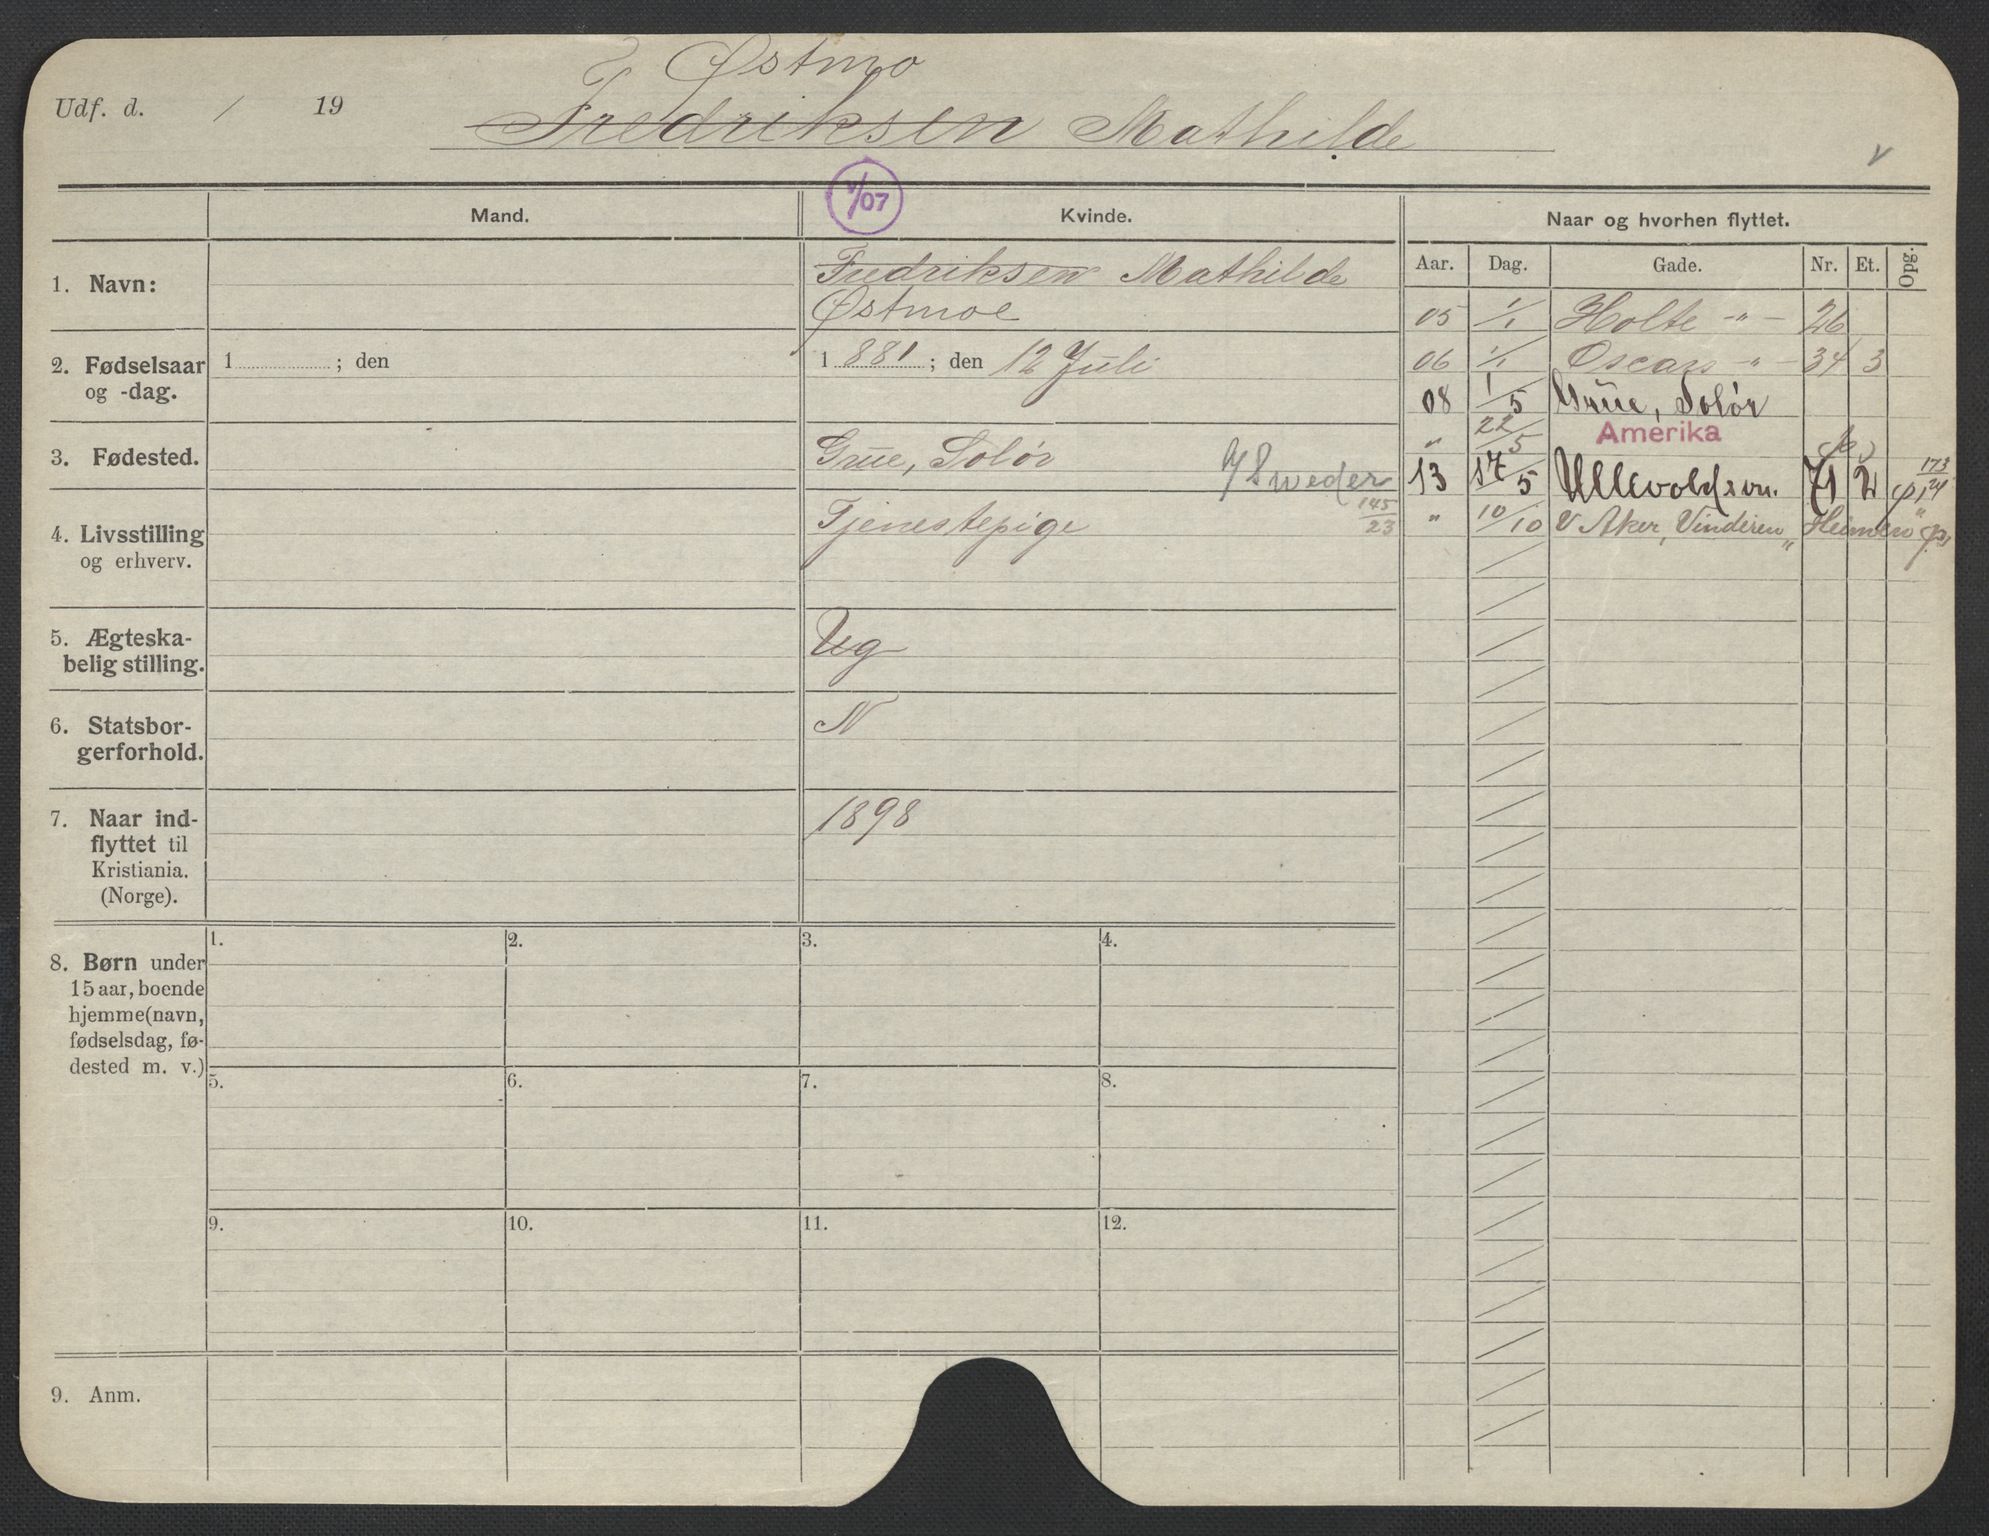 Østmo
Udf. d. / 19 Fredriksen Mathilde
V
V/07
Mand. Kvinde. Naar og hvorhen flyttet.
Aar. Dag. Gade. Nr. Et. Opg.
1. Navn: Fredriksen Mathilde
Østmoe
05 1/1 Holte -"- 26
2. Fødselsaar 1 ; den 1 881 ; den 12 Juli
og -dag.
06 1/1 Oscars -"- 34 3
08 1/5 Grue, Solør
" 22/5 Amerika
3. Fødested. Grue, Solør
13 17/5 Ullevoldsvn. 71 2 173/14
4. Livsstilling Tjenestepige 145/23
og erhverv.
" 10/10 V Aker, Vinderen, "Heimen"
5. Ægteska-
belig stilling. Ug
6. Statsbor-
gerforhold. N
7. Naar ind-
flyttet til
Kristiania.
(Norge). 1898
8. Børn under
15 aar, boende
hjemme (navn,
fødselsdag, fø-
dested m. v.)
1. 2. 3. 4.
5. 6. 7. 8.
9. 10. 11. 12.
9. Anm.